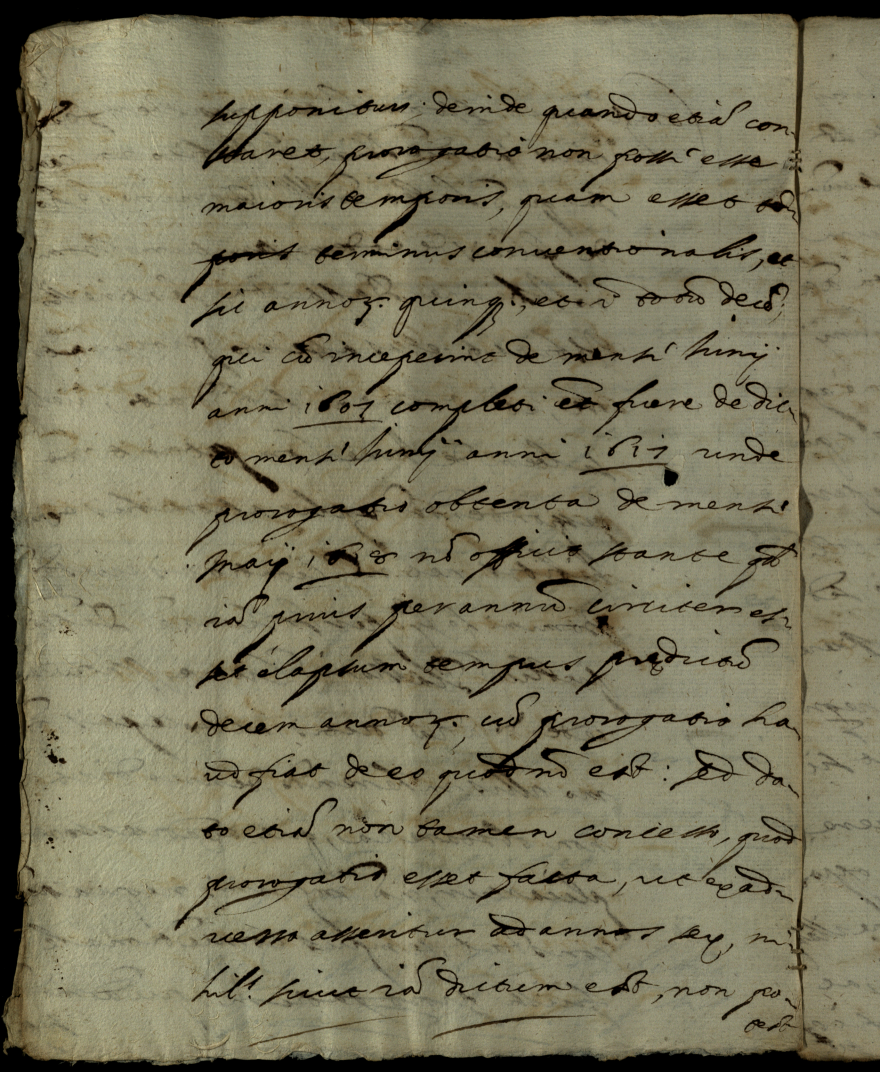 supponitur; deinde quando etiã con-
staret, prorogatio non posset esse
maioris temporis, quam esset tem-
poris terminus conventionalis, et
sic annoꝝ. quinq;, et ĩ totũ decẽ,
qui cũ inceperint de mense Iunij
anni 1607 completi et fuere de dic-
to mense Iunij anni 1617 unde
prorogatio obtenta de mense
Maij 1618 nõ officit stante qd̃
iã prius per annũ circiter es-
set elapsum tempus prędictũ
decem annoꝝ., cũ prorogatio ha-
ud fiat de eo quod nõ est: sed da-
to etiã non tamen concesso, quod
prorogatio esset facta, ut ex ad-
verso asseritur ad annos sex, ni-
hil. sicut iã dictum est, non po-
test